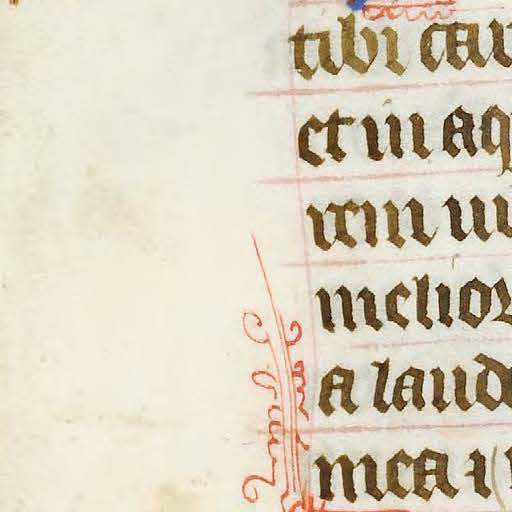 tibi car
et in aq
rem
melior
a laud
mea